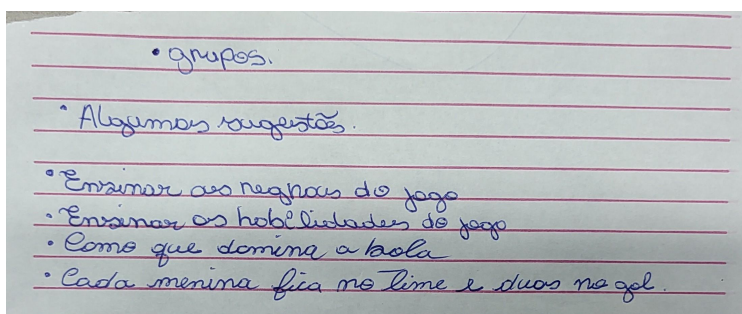 • grupos.
• Algumas sugestões.
• Ensinar as regras do jogo
• Ensinar as habilidades do jogo
• Como que domina a bola
• Cada menina fica no time e duas no gol.